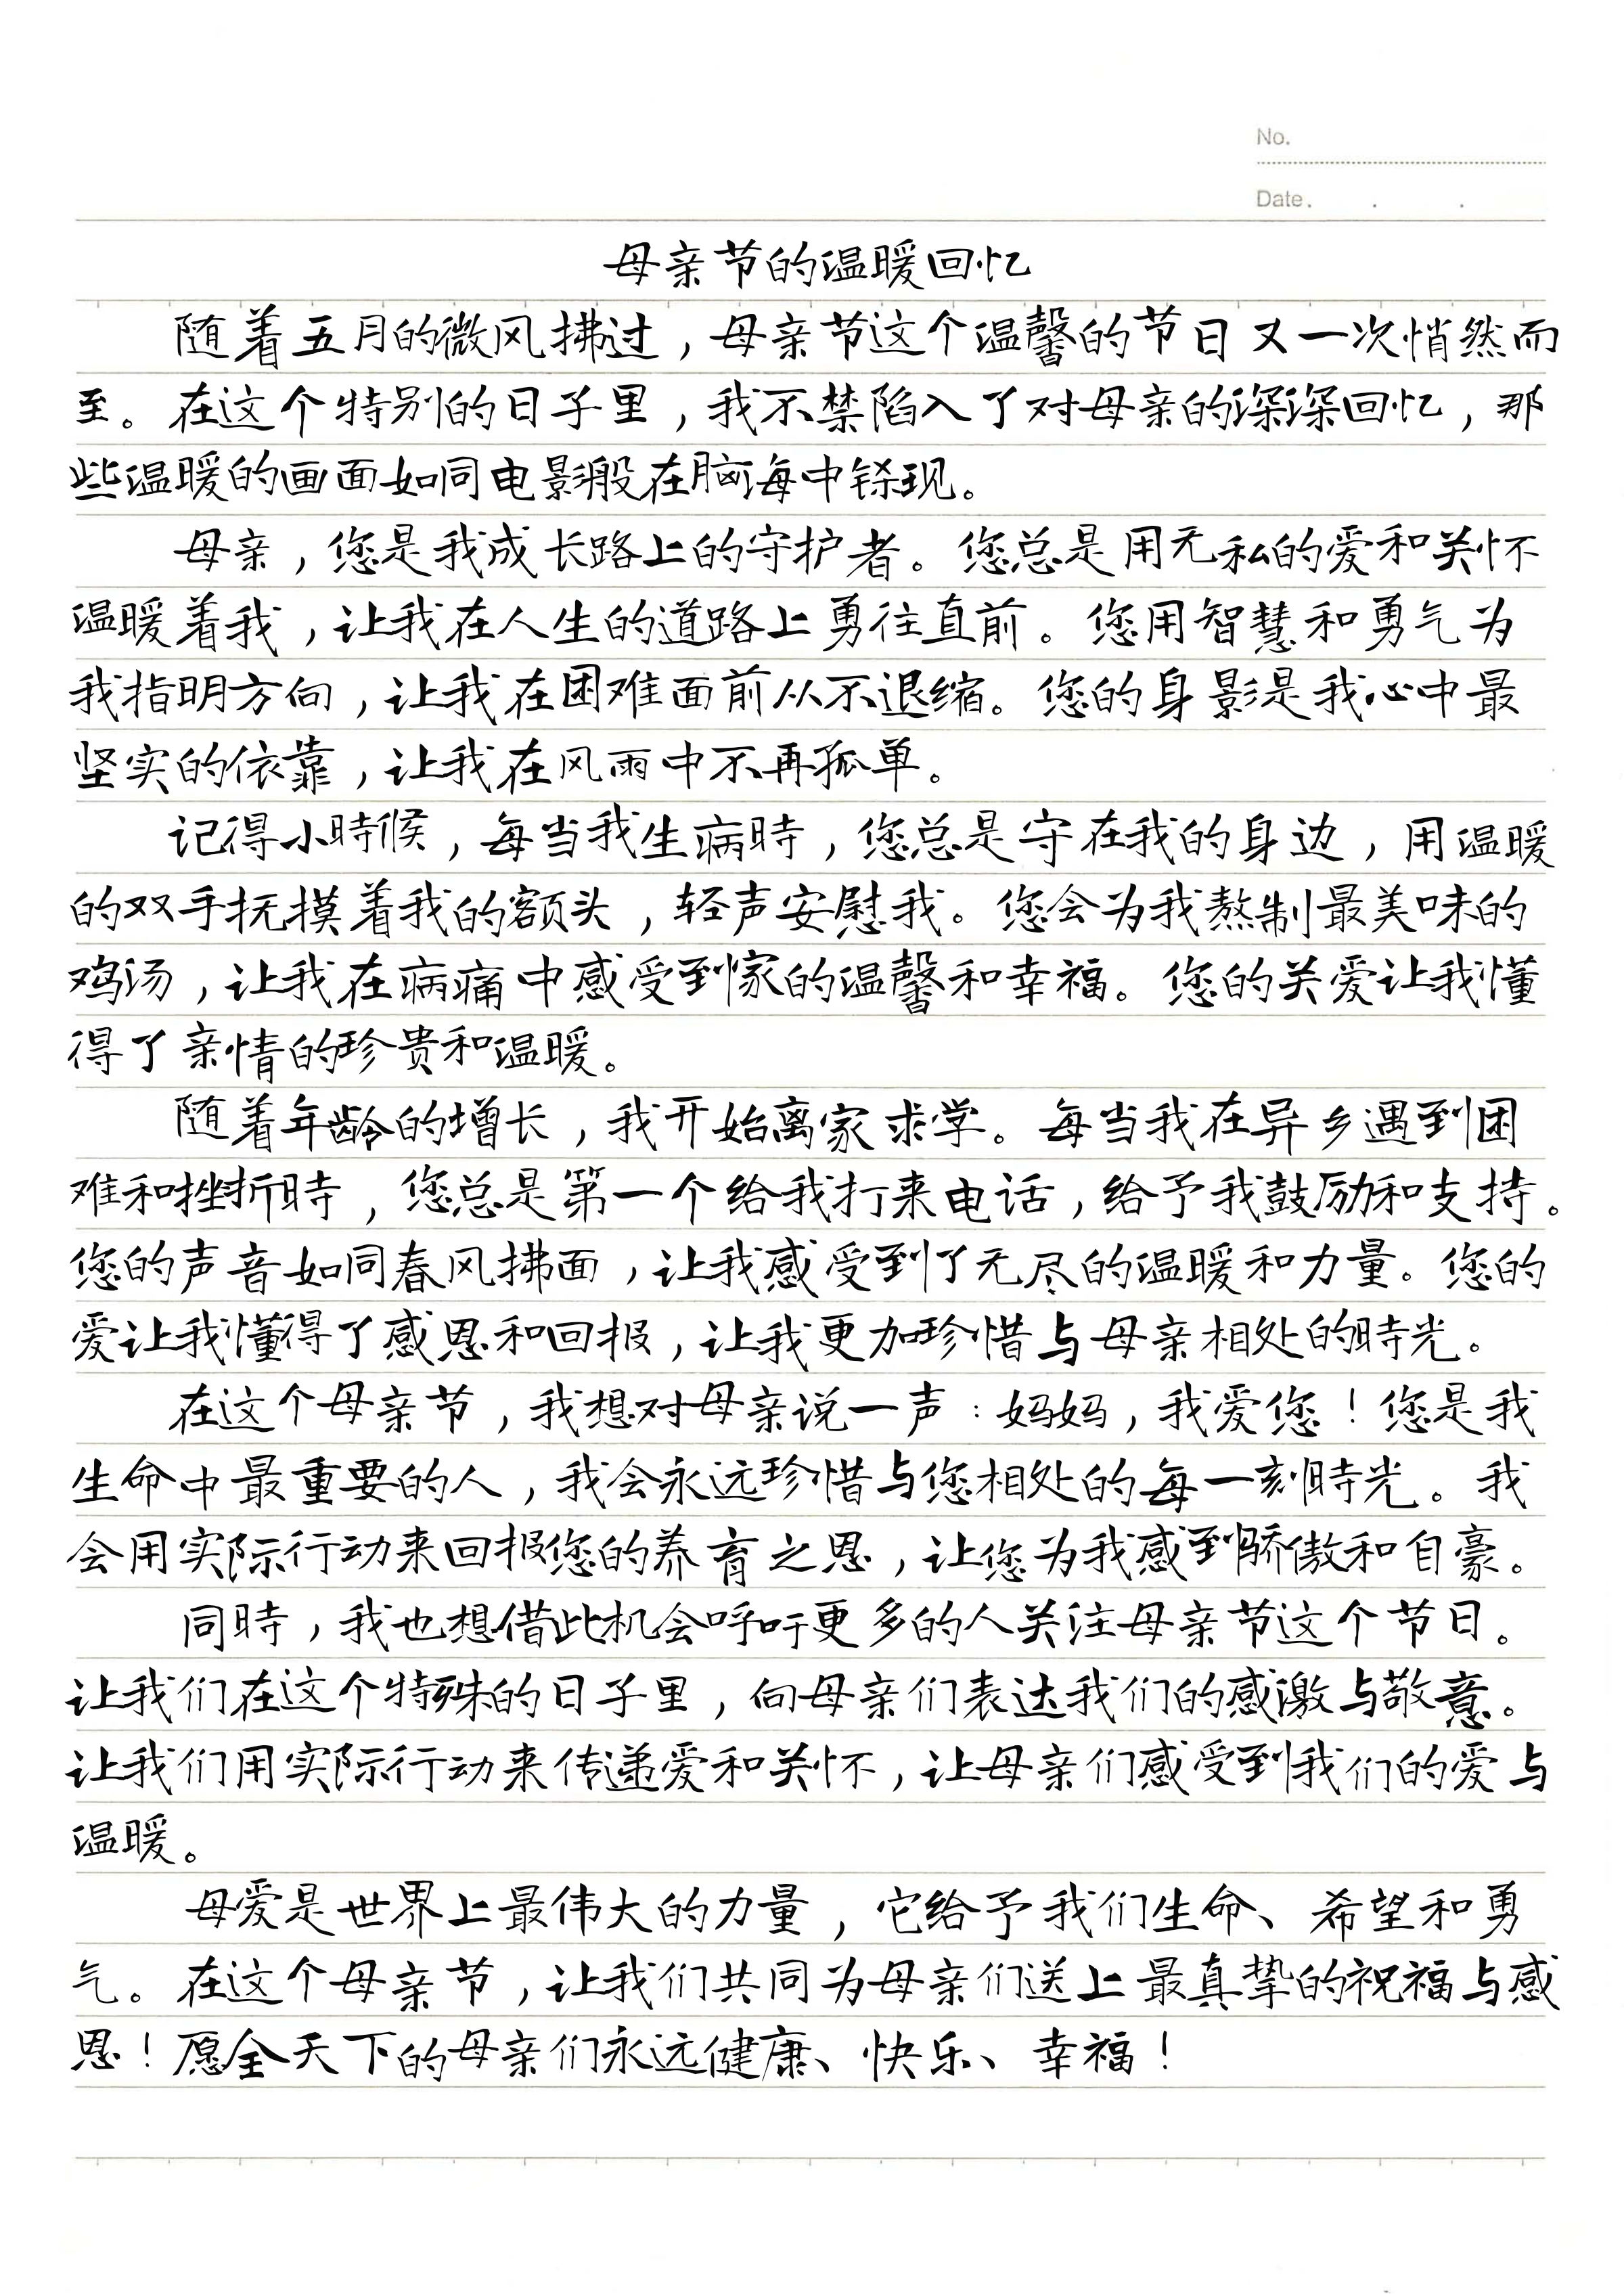 No.
Date.    .    .
母亲节的温暖回忆
随着五月的微风拂过，母亲节这个温馨的节日又一次悄然而
至。在这个特别的日子里，我不禁陷入了对母亲的深深回忆，那
些温暖的画面如同电影般在脑海中现。
母亲，您是我成长路上的守护者。您总是用无私的爱和关怀
温暖着我，让我在人生的道路上勇往直前。您用智慧和勇气为
我指明方向，让我在困难面前从不退缩。您的身影是我心中最
坚实的依靠，让我在风雨中不再孤单。
记得小時候，每当我生病時，您总是守在我的身边，用温暖
的双手抚摸着我的额头，轻声安慰我。您会为我熬制最美味的
鸡汤，让我在病痛中感受到家的温馨和幸福。您的关爱让我懂
得了亲情的珍贵和温暖。
随着年龄的增长，我开始离家求学。每当我在异乡遇到困
难和挫折時，您总是第一个给我打来电话，给予我鼓励和支持。
您的声音如同春风拂面，让我感受到了无尽的温暖和力量。您的
爱让我懂得了感恩和回报，让我更加珍惜与母亲相处的時光。
在这个母亲节，我想对母亲说一声：妈妈，我爱您！您是我
生命中最重要的人，我会永远珍惜与您相处的每一刻時光。我
会用实际行动来回报您的养育之恩，让您为我感到骄傲和自豪。
同時，我也想借此机会呼吁更多的人关注母亲节这个节日。
让我们在这个特殊的日子里，向母亲们表达我们的感激与敬意。
让我们用实际行动来传递爱和关怀，让母亲们感受到我们的爱与
温暖。
母爱是世界上最伟大的力量，它给予我们生命、希望和勇
气。在这个母亲节，让我们共同为母亲们送上最真挚的祝福与感
恩！愿全天下的母亲们永远健康、快乐、幸福！